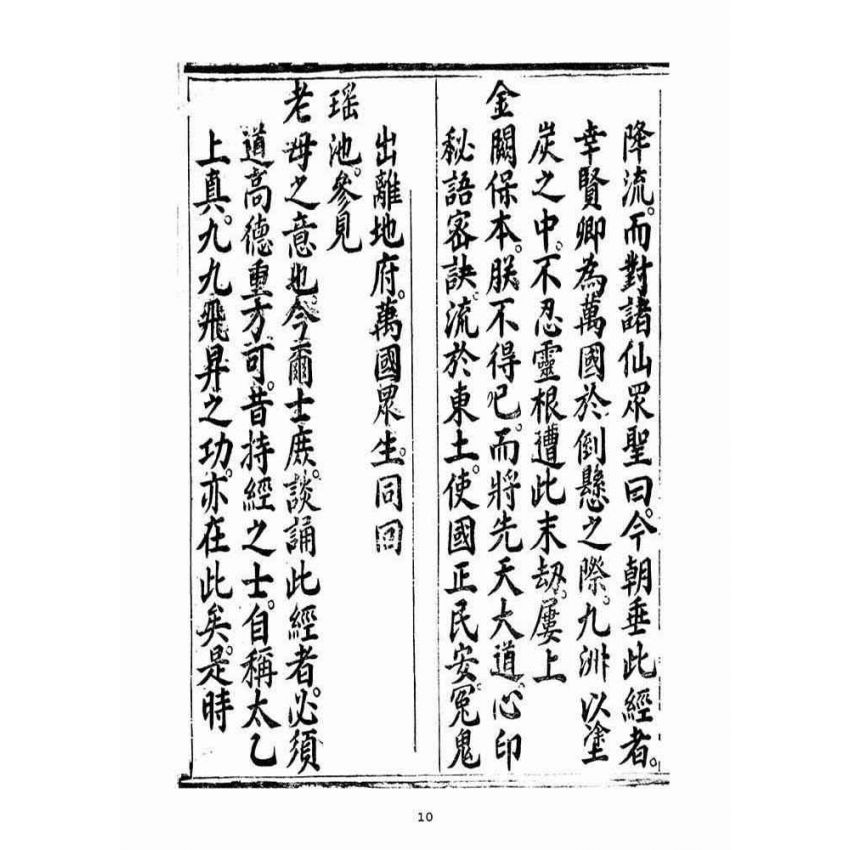 降流。而對諸仙眾聖曰。今朝垂此經者。
幸賢卿為萬國於倒懸之際。九洲以塗
炭之中。不忍靈根遭此末劫。屢上
金闕保本。朕不得已。而將先天大道。心印
秘語密訣。流於東土。使國正民安。冤鬼
出離地府。萬國眾生。同回
瑶池。參見
老母之意也。今爾士庶。談誦此經者。必須
道高德重方可。昔持經之士。自稱太乙
上真。九九飛昇之功。亦在此矣。是時
10